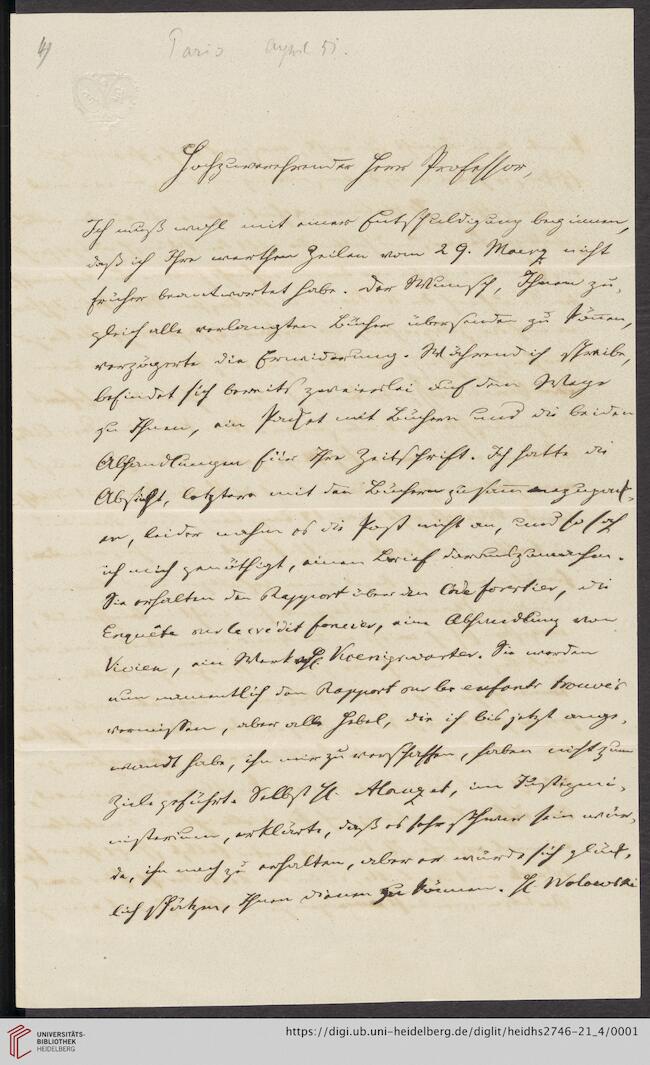 4)
Paris April 51.
Hochzuverehrender Herr Professor,
Ich muß wohl mit einer Entschuldigung beginnen,
daß ich Ihre werthen Zeilen vom 29. Maerz nicht
früher beantwortet habe. Der Wunsch, Ihnen zu-
gleich alle verlangten Bücher übersenden zu können,
verzögerte die Erwiderung. Während ich schreibe,
befindet sich bereits zweierlei auf dem Wege
zu Ihnen, ein Packet mit Büchern und die beiden
Abhandlungen für Ihre Zeitschrift. Ich hatte die
Absicht, letztere mit den Büchern zusammenzupack-
en, leider nahm es die Post nicht an, und so sah
ich mich genöthigt, einen Brief daraus zu machen.
Sie erhalten den Rapport über den Code forestier, die
Enquête sur le crédit foncier, eine Abhandlung von
Vivien, ein Werk Koenigswarter. Sie werden
nun namentlich den Rapport sur les enfants trouvés
vermissen, aber alle Hebel, die ich bis jetzt ange-
wandt habe, ihn mir zu verschaffen, haben nicht zum
Ziele geführt. Selbst H. Alauzet, im Justizmi-
nisterium, erklärte, daß es sehr schwer sein wür-
de, ihn noch zu erhalten, aber er würde sich glück-
lich schätzen, Ihnen dienen zu können. H. Wolowski
UNIVERSITÄTS-
BIBLIOTHEK
HEIDELBERG
https://digi.ub.uni-heidelberg.de/diglit/heidhs2746-21_4/0001